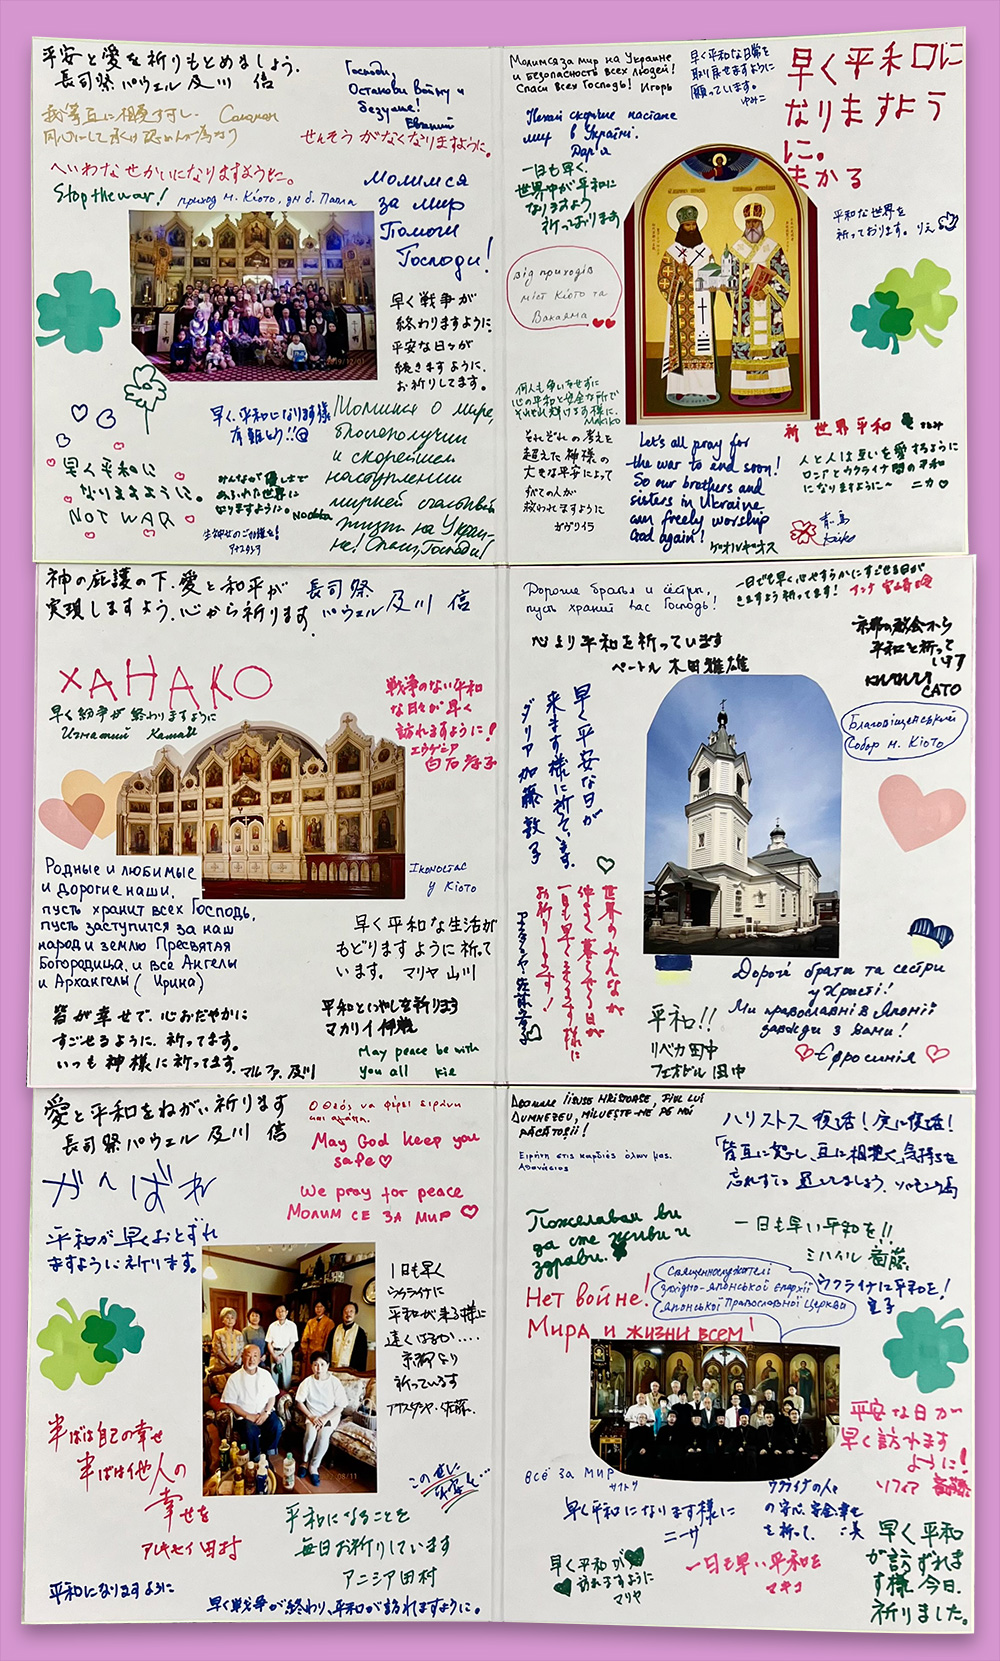 平安と愛を祈りもとめましょう.
長司祭 パウェル 及川 信
Господи,
Останови войну и
безумие!
Евгений
我等互に相愛すべし.
同心にして承け認めんが為なり
せんそう がなくなりますように。
へいわなせかいになりますように。
Stop the war!
приход м. Кіото, дм о. Павла
Молимся
за мир
Помоги
Господи!
早く戦争が
終わりますように
平安な日々が
続きますように、
お祈りしてます。
早く平和になります様
早く平和に
なりますように。
NOT WAR
みんなが優しさで
あふれた世界に
なりますように。
Молимся о мире,
благополучии
и скорейшем
наступлении
мирной счастливой
жизни на Украи-
не! Спаси, Господи!
Молимся за мир на Украине
и безопасность всех людей!
Спаси всех Господь! Игорь
早く平和な日常を
取り戻せますように
願っています。
ゆみこ
早く平和に
なりますよう
に。
まかる
Нехай скоріше настане
мир в Україні.
Дар'я
一日も早く.
世界中が平和に
なりますよう
祈っております
平和な世界を
祈っております。りえ
від приходів
міст Кіото та
Вакаяма
何人も争いをせずに
心の平和と安全な所で
それぞれ輝けます様に.
Makiko
それぞれの考えを
超えた神様の
大きな平安によって
全ての人が
救われますように
ガヴリイラ
Let's all pray for
the war to end soon!
So our brothers and
sisters in Ukraine
can freely worship
God again!
ゲオルギオス
祈 世界平和
人と人は互いを愛するように
ロシアとウクライナ間の平和
になりますように~ ニカ
神の庇護の下、愛と和平が
実現しますよう、心から祈ります.
長司祭
パウェル 及川 信
ХАНАКО
早く紛争が終わりますように
Игнатий
戦争のない平和
な日々が早く
訪れますように!
エウゲニア
白石孝子
Родные и любимые
и дорогие наши,
пусть хранит всех Господь,
пусть заступится за наш
народ и землю Пресвятая
Богородица, и все Ангелы
и Архангелы (Ирина)
Іконостас
у Кіото
早く平和な生活が
もどりますように祈って
います。 マリヤ 山川
皆が幸せで、心おだやかに
すごせるように、祈ってます。
いつも神様に祈ってます.
マルファ.及川
平和といやしを祈ります
マカリイ 伊藤
May peace be with
you all Kie
Дорогие братья и сёстры,
пусть хранит вас Господь!
一日でも早く心やすらかにすごせる日が
きますよう祈ってます!
心より平和を祈っています
ペートル 木田雅雄
京都の教会から
平和を祈って
います
САТО
早く平安な日が
来ます様に祈ています.
ダリア 加藤敦子
Благовіщенський
Собор м. Кіото
世界のみんなが
仲よく暮らせる日が
一日も早く来ます様に
お祈りします!
平和!!
リベカ田中
フェオドル 田中
Дорогі брати та сестри
у Христі!
Ми православні в Японії
завжди з вами!
Єфросинія
愛と平和をねがい祈ります
長司祭パウェル 及川 信
Ο Θεός να φέρει ειρήνη
και αγάπη.
May God keep you
safe
We pray for peace
МОЛИМ СЕ ЗА МИР
がんばれ
平和が早くおとずれ
ますように祈ります。
1日も早く
ウクライナに
平和が来る様に
遠くはるか....
京都より
祈っています
アナスタシヤ.佐藤.
半ばは自己の幸せ
半ばは他人の
幸せを
アレキセイ 田村
平和になることを
毎日お祈りしています
アニシア 田村
平和になりますように
早く戦争が終わり、平和が訪れますように。
DOAMNE IISUSE HRISTOASE, FIUL LUI
DUMNEZEU, MILUEȘTE-NE PE NOI
PĂCĂTOȘII!
Ειρήνη στις καρδιές όλων μας.
Αθανάσιος
ハリストス 復活! 実に復活!
Пожелавам ви
да сте живи и
здрави.
一日も早い平和を!!
ミハイル 斎藤
Нет войне!
Мира и жизни всем!
Священнослужителі
Західно-Японської Єпархії
Японської Православної Церкви
ウクライナに平和を!
平安な日が
早く訪れます
ように!
ソフィア 斎藤
ВСЁ ЗА МИР
サイトウ
早く平和になります様に
ニーナ
ウクライナの人々
の安心、安全、幸せ
を祈って、
早く平和が
訪れますように
マリヤ
一日も早い平和を
マキコ
早く平和
が訪ずれま
す様 今日、
祈りました。